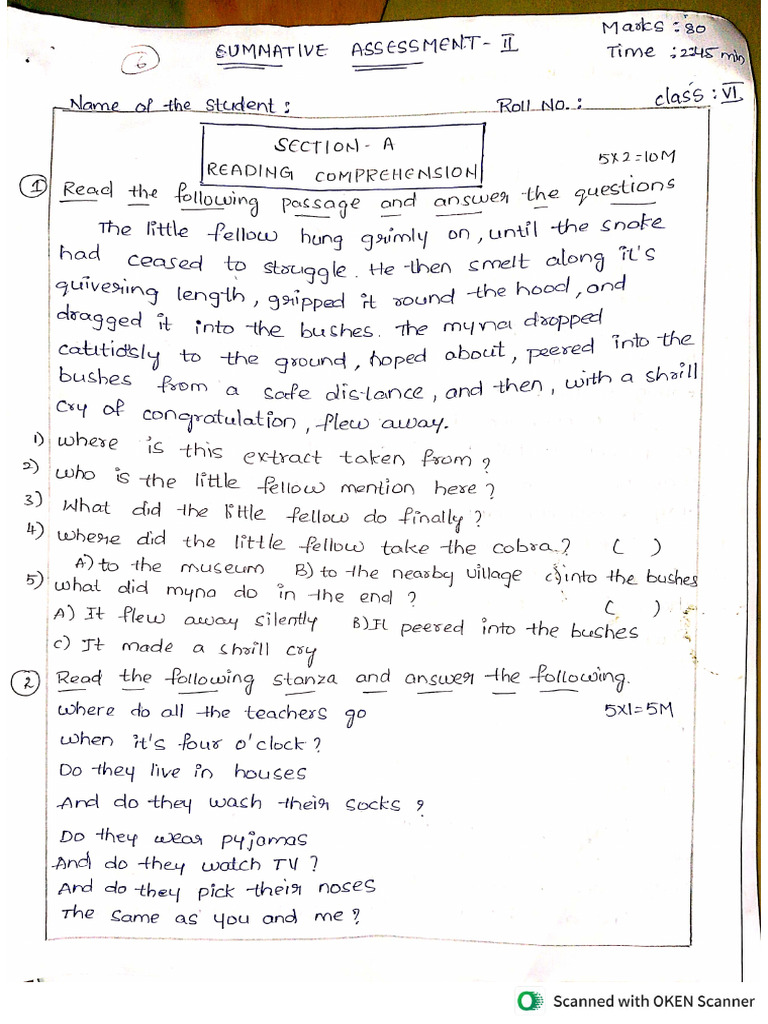 Marks : 80
6
SUMMATIVE ASSESSMENT - II
Time : 2:45 min
Name of the Student :
Roll No. :
class : VI
SECTION - A
READING COMPREHENSION
5x2=10M
1 Read the following passage and answer the questions
The little fellow hung grimly on, until the snake
had ceased to struggle. He then smelt along it's
quivering length, gripped it round the hood, and
dragged it into the bushes. The myna dropped
to the ground, hoped about, peered into the
bushes from a safe distance, and then, with a shrill
cry of congratulation, flew away.
1) where is this extract taken from?
2) who is the little fellow mention here?
3) What did the little fellow do finally?
4) where did the little fellow take the cobra? ( )
A) to the museum B) to the nearby village c) into the bushes
5) what did myna do in the end? ( )
A) It flew away silently B) It peered into the bushes
c) It made a shrill cry
2 Read the following stanza and answer the following.
where do all the teachers go 5x1=5M
when it's four o'clock?
Do they live in houses
And do they wash their socks?
Do they wear pyjamas
And do they watch TV?
And do they pick their noses
The same as you and me?
Scanned with OKEN Scanner